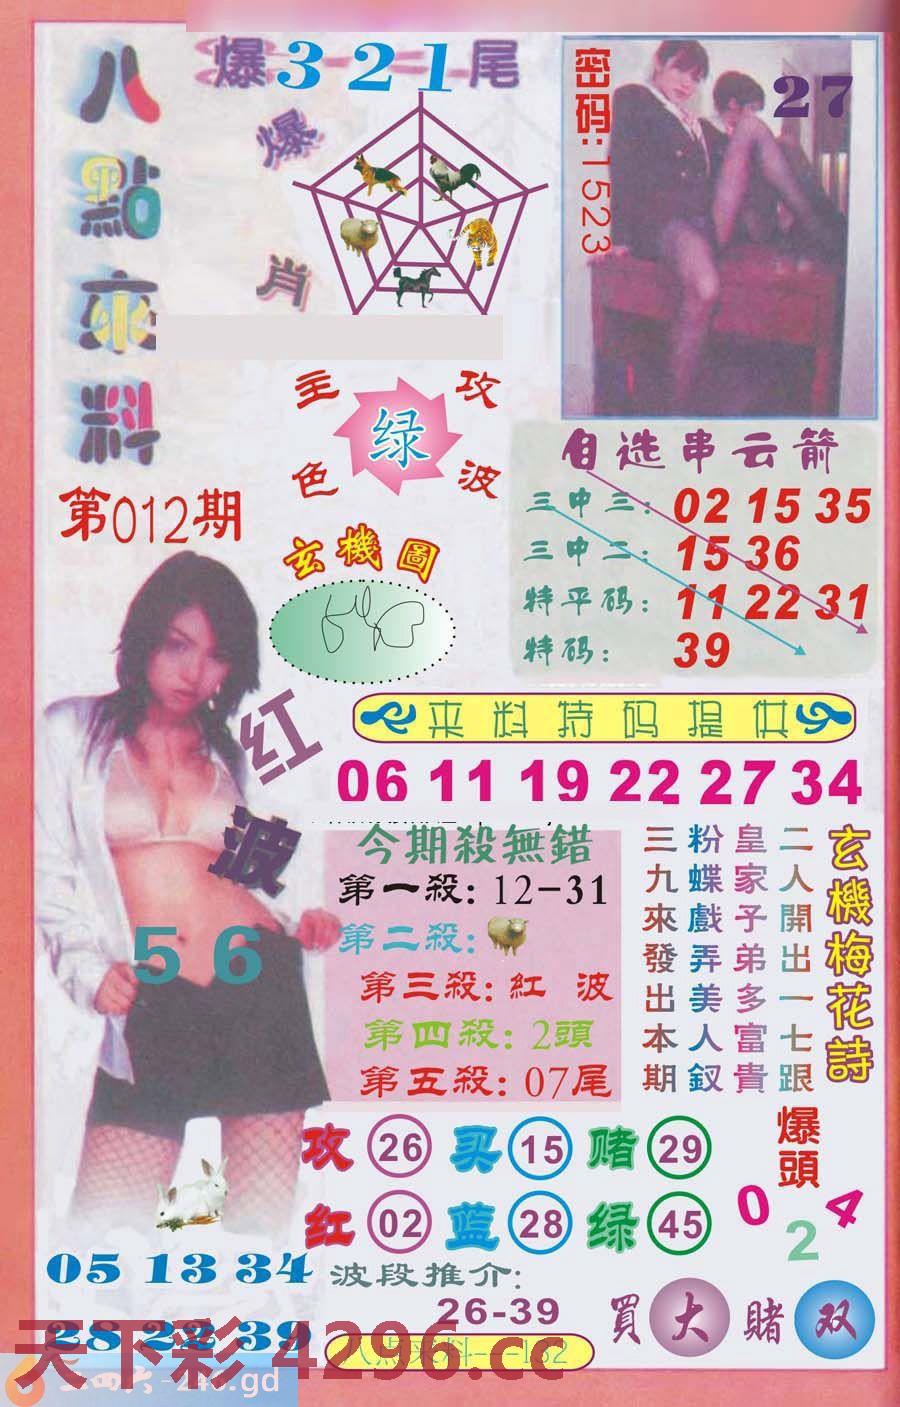 八點來料
爆321尾
爆肖
密码:1523
27
主攻
绿
色波
第012期
玄機圖
自选串云箭
三中三: 02 15 35
三中二: 15 36
特平码: 11 22 31
特码: 39
来料特码提供
06 11 19 22 27 34
红波
56
今期殺無錯
第一殺: 12-31
第二殺:
第三殺: 紅 波
第四殺: 2頭
第五殺: 07尾
玄機梅花詩
二人開出一七跟
皇家子弟多富貴
粉蝶戲弄美人釵
三九來發出本期
攻 26 买 15 赌 29
红 02 蓝 28 绿 45
爆頭
0 2 4
05 13 34
28 22 39
波段推介:
26-39
買大 賭双
八点来料---132
天下彩 4296.cc
246.gd